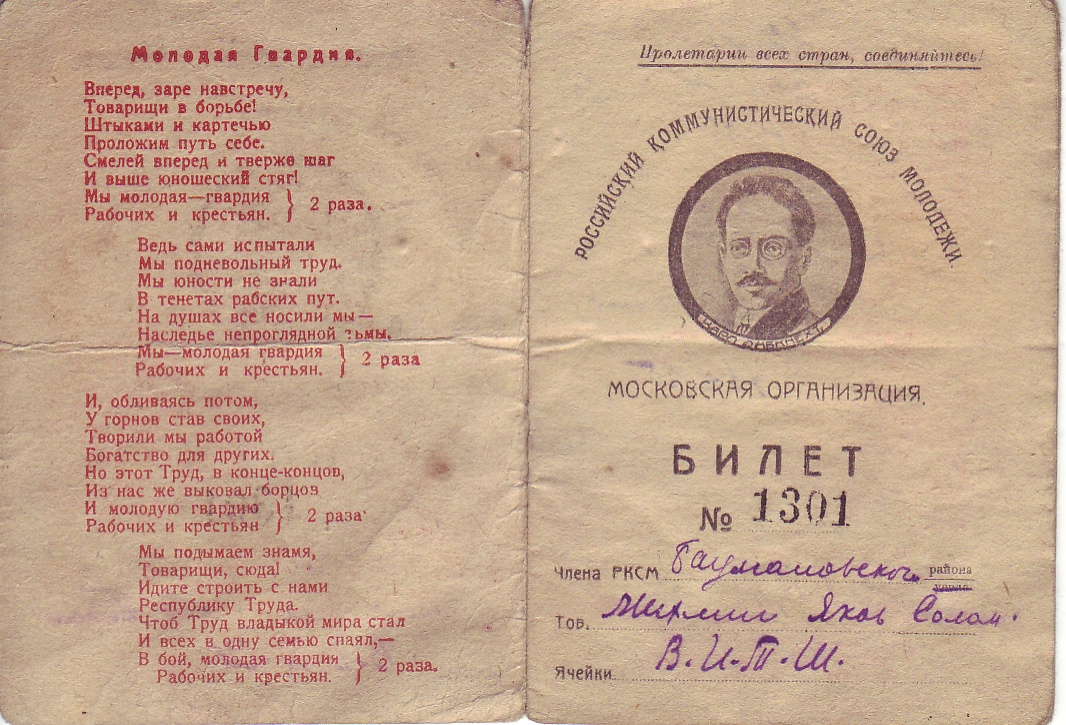 Молодая Гвардия.
Вперед, заре навстречу,
Товарищи в борьбе!
Штыками и картечью
Проложим путь себе.
Смелей вперед и тверже шаг
И выше юношеский стяг!
Мы молодая—гвардия
Рабочих и крестьян. } 2 раза.
Ведь сами испытали
Мы подневольный труд.
Мы юности не знали
В тенетах рабских пут.
На душах все носили мы—
Наследье непроглядной тьмы.
Мы—молодая гвардия
Рабочих и крестьян. } 2 раза
И, обливаясь потом,
У горнов став своих,
Творили мы работой
Богатство для других.
Но этот Труд, в конце-концов,
Из нас же выковал борцов
И молодую гвардию
Рабочих и крестьян } 2 раза
Мы подымаем знамя,
Товарищи, сюда!
Идите строить с нами
Республику Труда.
Чтоб Труд владыкой мира стал
И всех в одну семью спаял,—
В бой, молодая гвардия
Рабочих и крестьян. } 2 раза.
Пролетарии всех стран, соединяйтесь!
РОССИЙСКИЙ КОММУНИСТИЧЕСКИЙ СОЮЗ МОЛОДЕЖИ.
МОСКОВСКАЯ ОРГАНИЗАЦИЯ.
БИЛЕТ
№ 1301
Члена РКСМ Баумановского района
Тов. Яков Солом.
Ячейки В.И.Т.Ш.